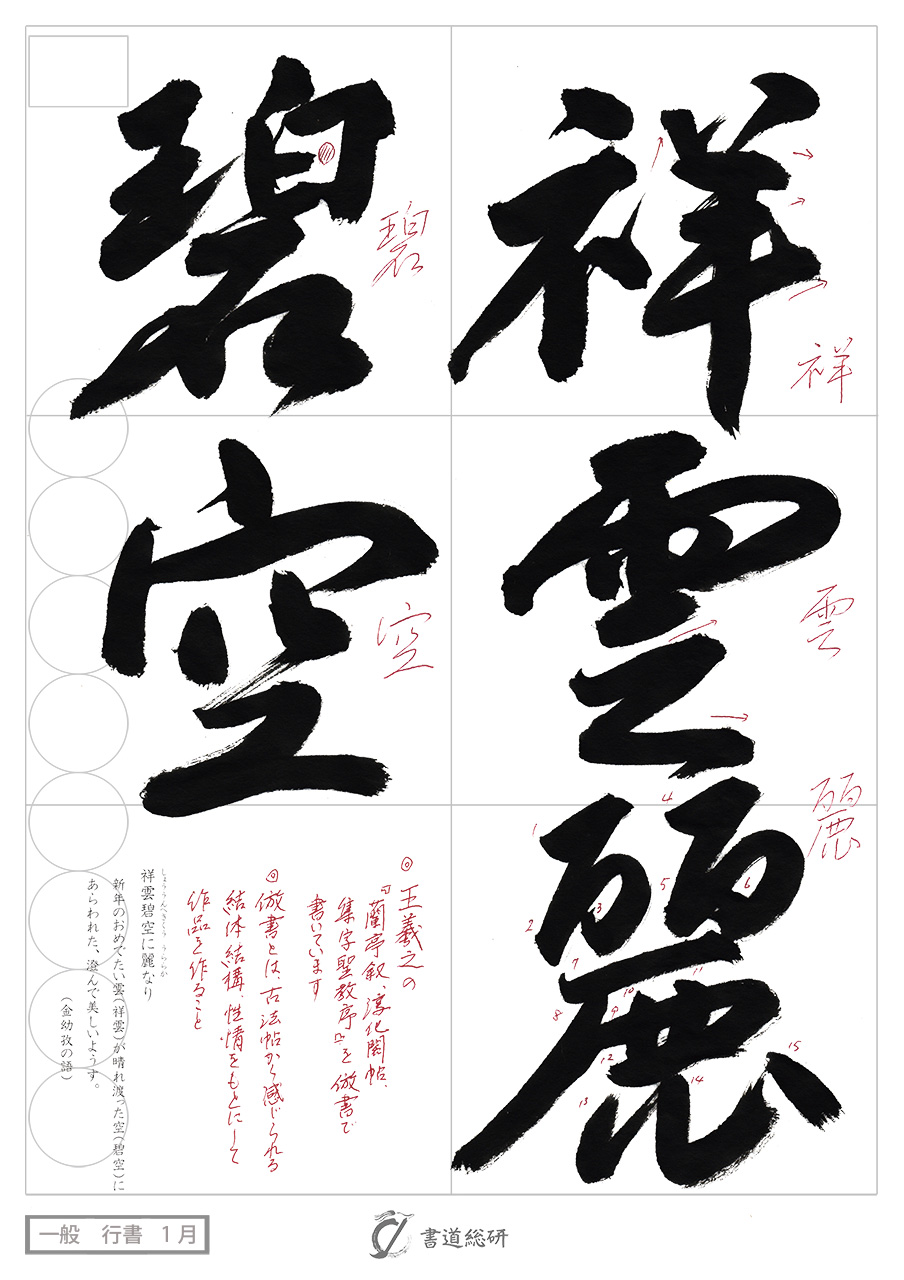 祥雲麗
碧空
祥
雲
麗
碧
空
1
2
3
4
5
6
7
8
9
10
11
12
13
14
15
◎王羲之の
『蘭亭叙、淳化閣帖、
集字聖教序』を倣書で
書いています
◎倣書とは、古法帖から感じられる
結体結構、性情をもとにして
作品を作ること
しょううんへきくう うららか
祥雲碧空に麗なり
新年のおめでたい雲(祥雲)が晴れ渡った空(碧空)に
あらわれた、澄んで美しいようす。
(金幼孜の語)
一般 行書 1月
書道総研